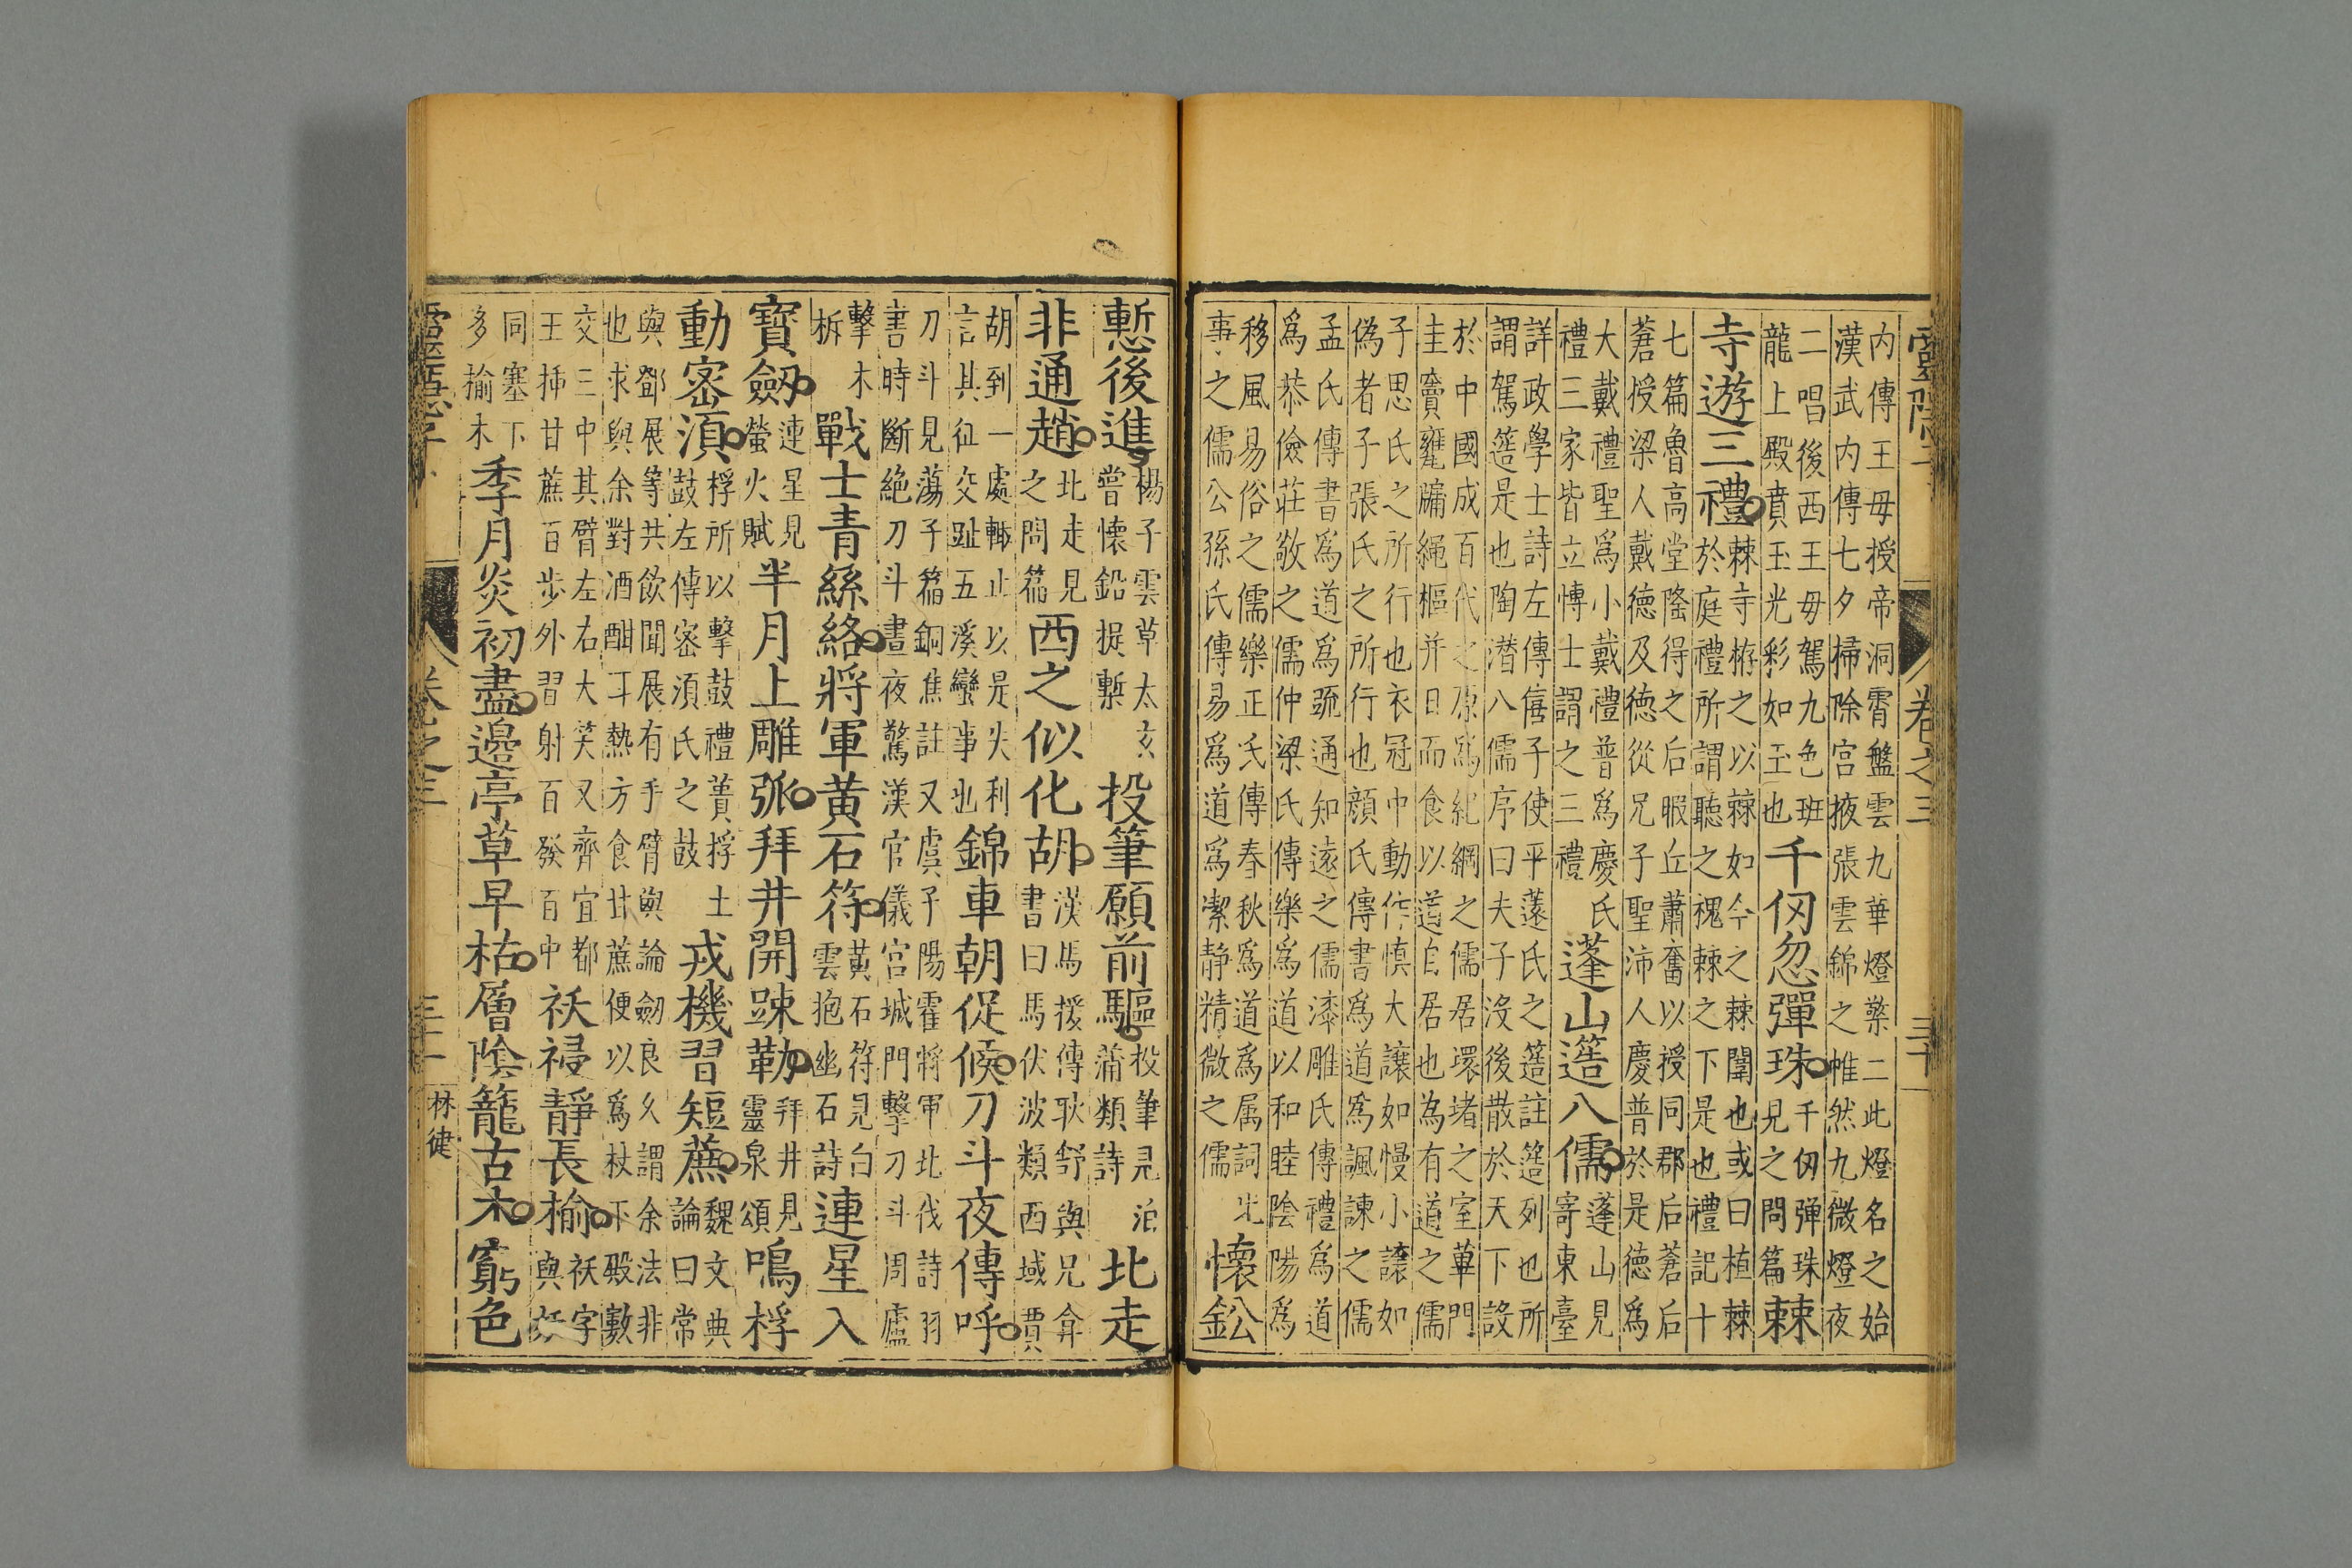 靈隱子 卷之三 三十
內傳王母授帝洞霄盤雲九華燈檠二此燈名之始
漢武内傳七夕掃除宮掖張雲錦之帷然九微燈夜
二唱後西王母駕九色班
龍上殿賁玉光彩如玉也
千仭忽彈珠
千仭弾珠
見之問篇
棘
寺遊三禮
棘寺栫之以棘如今之棘闈也或曰植棘
於庭禮所謂聽之槐棘之下是也禮記十
七篇魯高堂隆得之后暇丘蕭奮以授同郡后蒼后
蒼授梁人戴德及德從兄子聖沛人慶普於是德爲
大戴禮聖爲小戴禮普爲慶氏
禮三家皆立愽士謂之三禮
蓬山簉八儒
蓬山見
寄東臺
詳政學士詩左傳僖子使平薳氏之簉註簉列也所
謂駕簉是也陶潜八儒序曰夫子没後散於天下設
於中國成百代之原爲紀綱之儒居環堵之室蓽門
圭竇甕牖繩樞并日而食以道自居也為有道之儒
子思氏之所行也衣冠中動作慎大讓如慢小讓如
偽者子張氏之所行也顔氏傳書爲道爲諷諫之儒
孟氏傳書爲道爲䟽通知逺之儒漆雕氏傳禮爲道
爲恭儉莊敬之儒仲梁氏傳樂爲道以和睦陰陽爲
移風易俗之儒樂正氏傳春秋爲道爲属詞比
事之儒公孫氏傳易爲道爲潔静精微之儒
懷鈆
慙後進
楊子雲草太玄
嘗懷鉛提槧
投筆願前驅
投筆見泊
蒲類詩
北走
非通趙
北走見
之問篇
西之似化胡
漢馬援傳耿舒與兄弇
書曰馬伏波類西域賈
胡到一處輙止以是失利
言其征交趾五溪蠻事也
錦車朝促候刀斗夜傳呼
刀斗見蕩子篇銅焦註又虞子陽霍將軍北伐詩羽
書時斷絶刀斗晝夜驚漢官儀宮城門擊刀斗周廬
擊木
柝
戰士青絲絡將軍黄石符
黃石符見白
雲抱幽石詩
連星入
寶劔
連星見
螢火賦
半月上雕弧拜井開踈勒
拜井見
靈泉頌
鳴桴
動密湏
桴所以擊鼓禮蕢桴土
鼓左傳密須氏之鼓
戎機習短蔗
魏文典
論曰常
與鄧展等共飲聞展有手臂與論劔良久謂余法非
也求與余對酒酣耳熱方食甘蔗便以爲杖下殿數
交三中其臂左右大笑又齊宜都
王揷甘蔗百步外習射百發百中
祅祲靜長榆
祅字
與妖
同塞下
多揄木
季月炎初盡邊亭草早枯層陰籠古木窮色
靈隱子 卷之三 三十一 林健